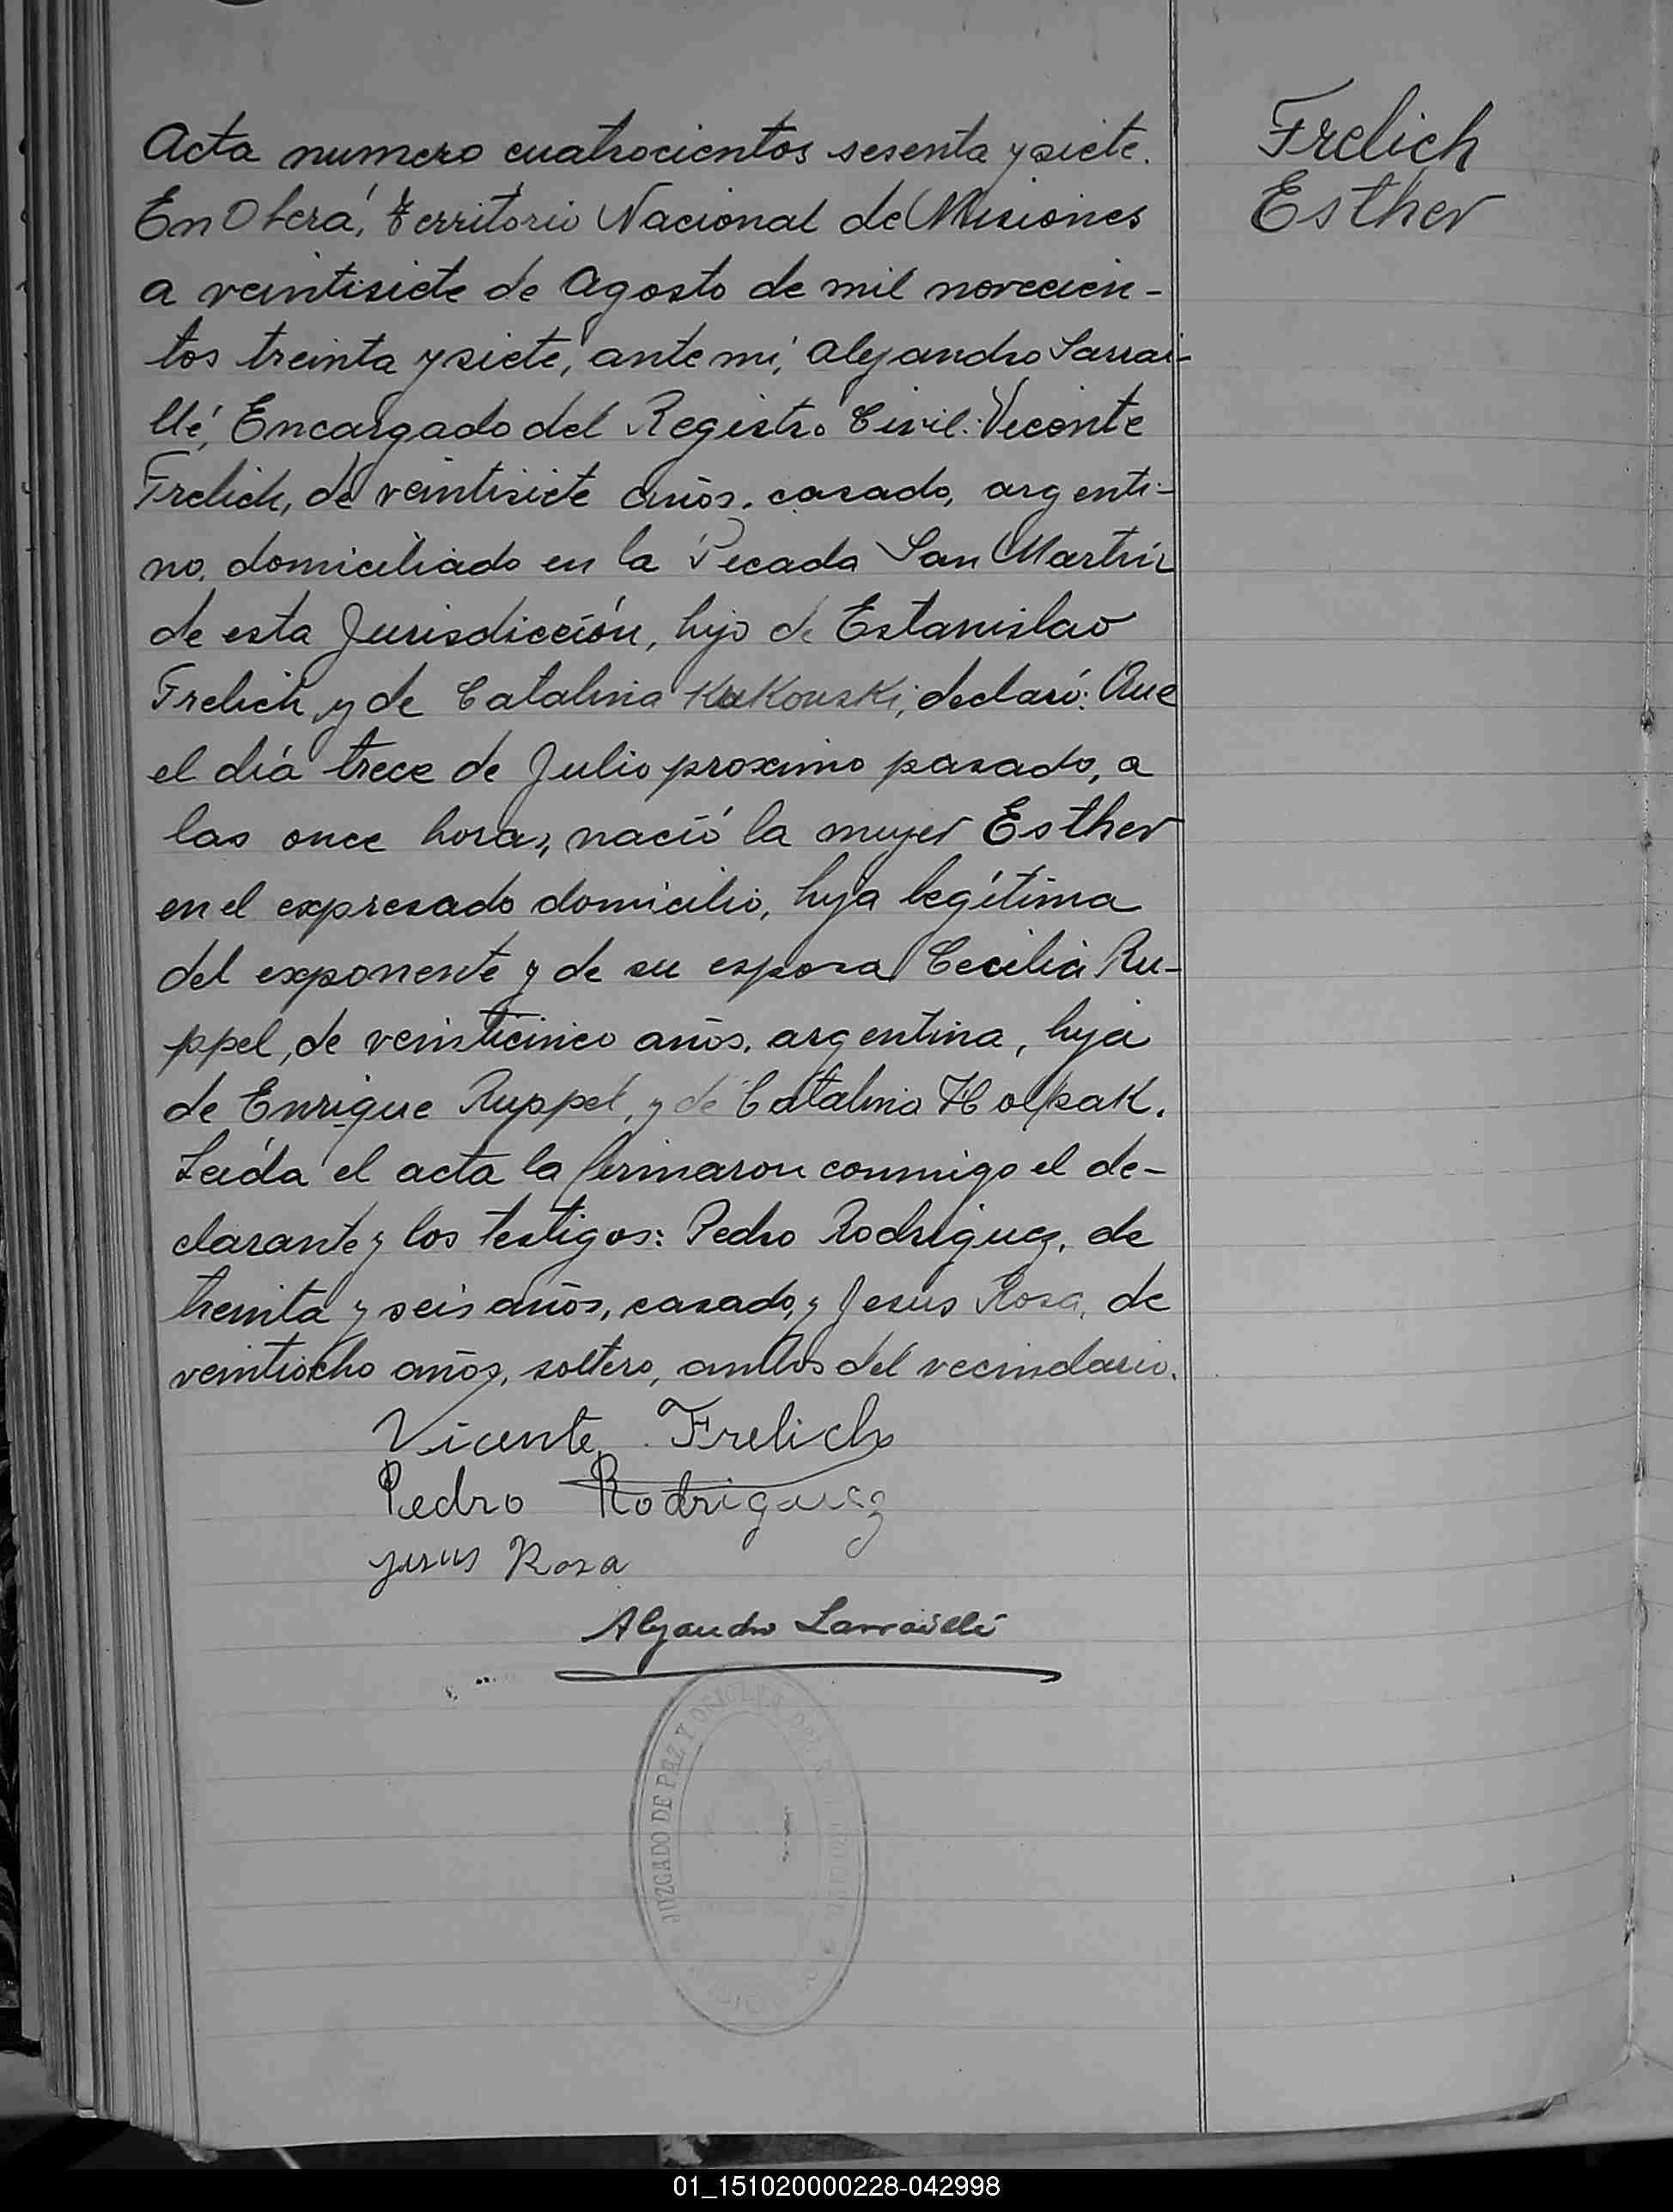 Frelich
Esther
Acta numero cuatrocientos sesenta y siete.
En Oberá, territorio Nacional de Misiones
a veintisiete de Agosto de mil novecien-
tos treinta y siete, ante mi, Alejandro Larrai-
llé, Encargado del Registro Civil: Vicente
Frelich, de veintisiete años, casado, argenti-
no, domiciliado en la Picada San Martín
de esta Jurisdicción, hijo de Estanislao
Frelich y de Catalina Kukouski, declaró: Que
el día trece de Julio proximo pasado, a
las once horas, nació la mujer Esther
en el expresado domicilio, hija legítima
del exponente y de su esposa Cecilia Ru-
ppel, de veinticinco años, argentina, hija
de Enrique Ruppel, y de Catalina
Leída el acta la firmaron conmigo el de-
clarante y los testigos: Pedro Rodriguez, de
treinta y seis años, casado, y Jesus Rosa, de
veintiocho años, soltero, ambos del vecindario.
Vicente Frelich
Pedro Rodriguez
Jesus Rosa
Alejandro Larraillé
JUZGADO DE PAZ Y
01_151020000228-042998